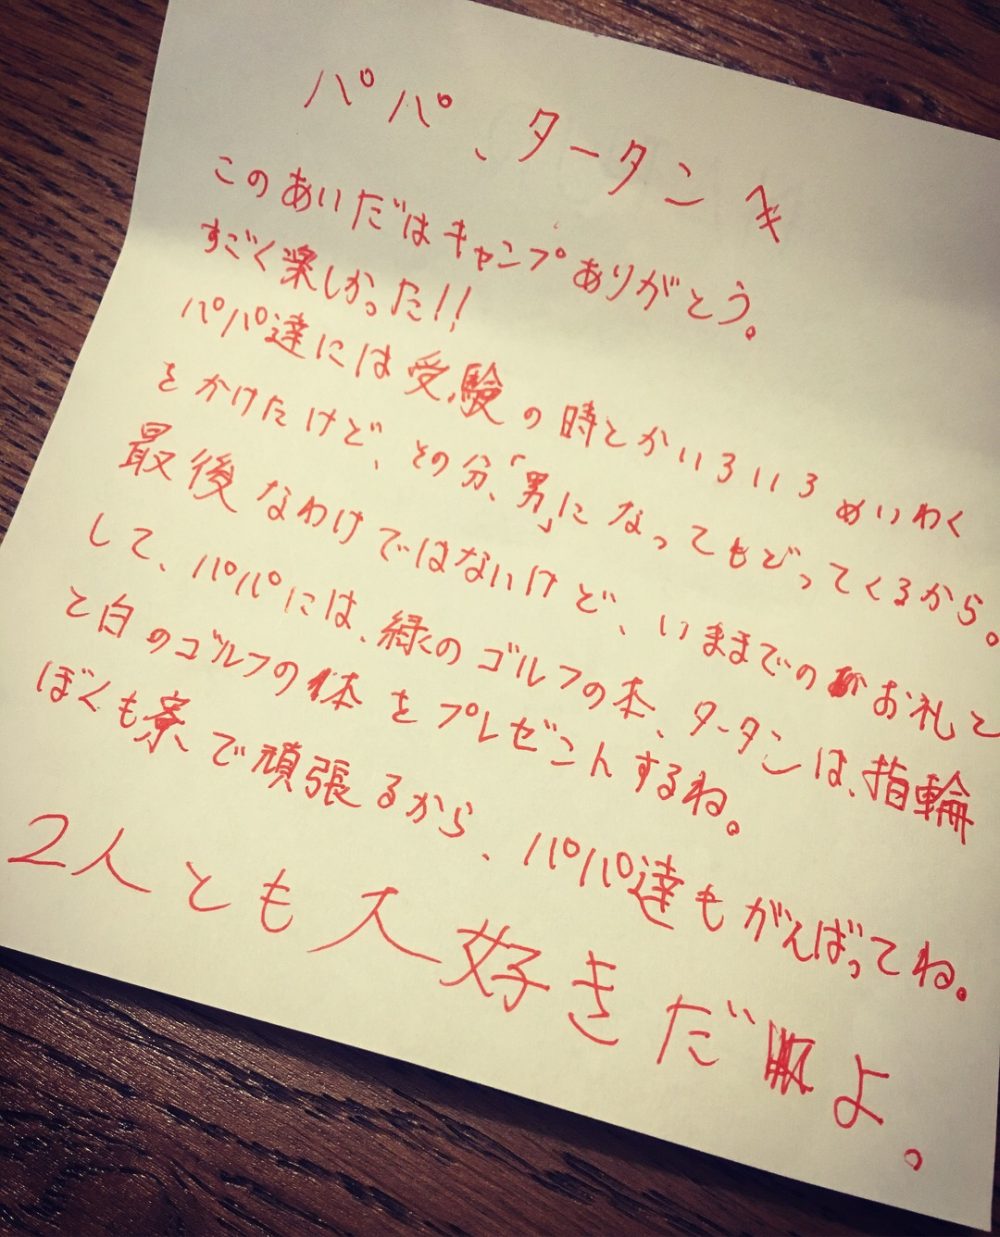 パパ、タータンへ
このあいだはキャンプありがとう。
すごく楽しかった!!
パパ達には受験の時とかいろいろめいわく
をかけたけど、その分、「男」になってもどってくるから。
最後なわけではないけど、いままでのお礼と
して、パパには、緑のゴルフの本、タータンは、指輪
と白のゴルフの体をプレゼこんするね。
ぼくも寮で頑張るから、パパ達もがんばってね。
2人とも大好きだよ。